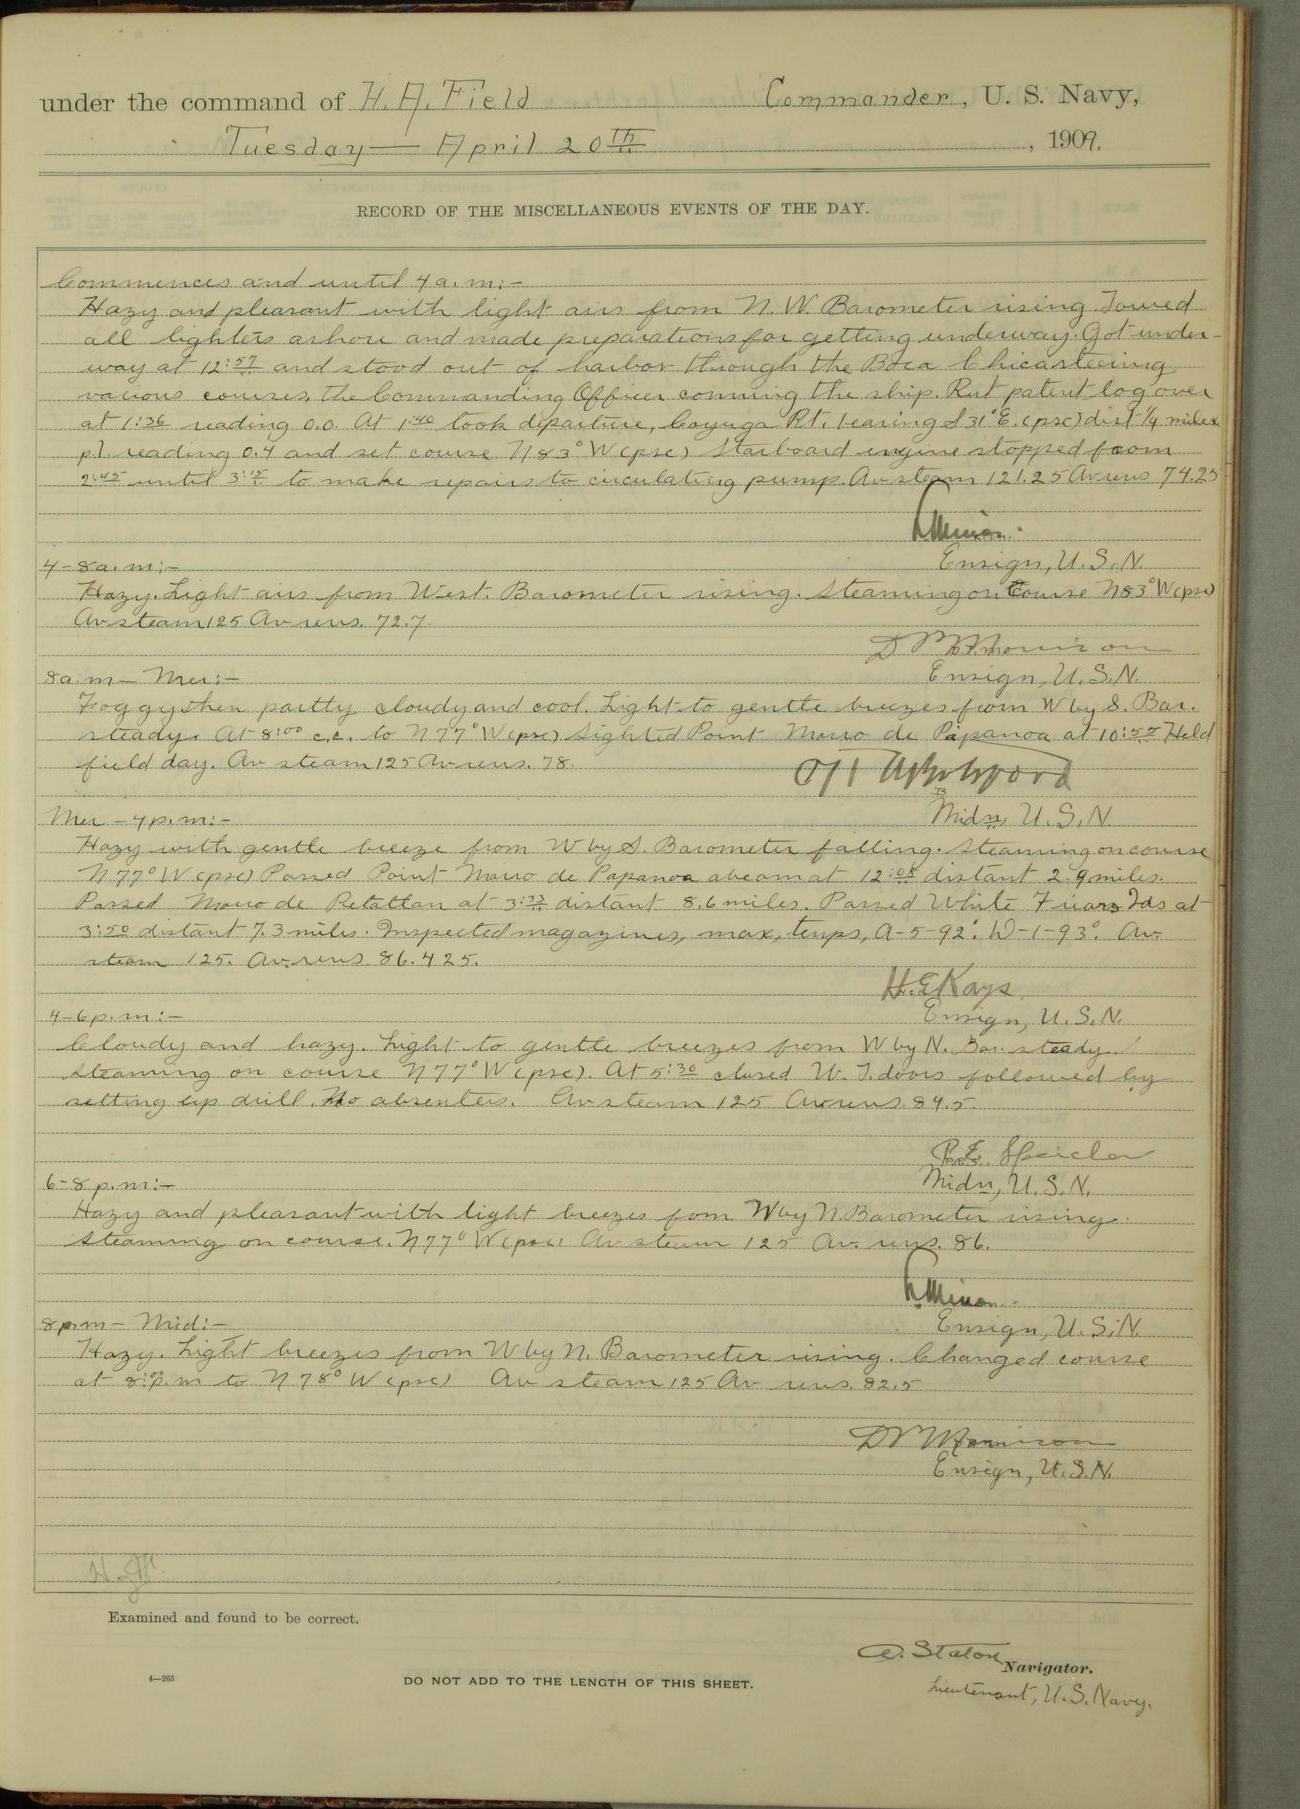 under the command of H. A. Field Commander, U. S. Navy,
Tuesday — April 20th, 1909.
RECORD OF THE MISCELLANEOUS EVENTS OF THE DAY.
Commences and until 4 a.m:-
Hazy and pleasant with light airs from N. W. Barometer rising. Towed
all lighters ashore and made preparations for getting underway. Got under-
way at 12:57 and stood out of harbor through the Boca Chica steering
various courses, the Commanding Officer conning the ship. Put patent log over
at 1:36 reading 0.0. At 1:40 took departure, Cayuga Rt. bearing S 31° E. (psc) dist 1/4 miles
p.l. reading 0.4 and set course N 83° W (psc) Starboard engine stopped from
2:45 until 3:15 to make repairs to circulating pump. Av steam 121.25 Av revs 74.25
Ensign, U.S.N.
4-8 a.m:-
Hazy. Light airs from West. Barometer rising. Steaming on Course N 83° W (psc)
Av steam 125 Av revs. 72.7.
Ensign, U.S.N.
8 a m - Mer:-
Foggy then partly cloudy and cool. Light to gentle breezes from W by S. Bar.
steady. At 8:00 c.c. to N 77° W (psc) Sighted Point Morro de Papanoa at 10:55 Held
field day. Av steam 125 Av revs. 78.
Midn, U.S.N
Mer - 4 p.m:-
Hazy with gentle breeze from W by S. Barometer falling. Steaming on course
N 77° W (psc) Passed Point Morro de Papanoa abeam at 12:08 distant 2.9 miles.
Passed Morro de Petatlan at 3:33 distant 8.6 miles. Passed White Friars Ids at
3:50 distant 7.3 miles. Inspected magazines, max, temps, A-5-92°. D-1-93°. Av.
steam 125. Av. revs. 86.425.
H.E. Kays
Ensign, U.S.N.
4-6 p.m:-
Cloudy and hazy. Light to gentle breezes from W by N. Bar. steady.
Steaming on course N 77° W (psc). At 5:30 closed W. T. doors followed by
setting up drill. No absentees. Av steam 125 Av revs. 84.5.
Midn, U.S.N.
6-8 p.m:-
Hazy and pleasant with light breezes fom W by N. Barometer rising.
Steaming on course. N 77° W (psc) Av steam 125 Av. revs. 86.
Ensign, U.S.N.
8 p.m - Mid:-
Hazy. Light breezes from W by N. Barometer rising. Changed course
at p.m to N 78° W (psc) Av steam 125 Av revs. 82.5
Ensign, U.S.N.
Examined and found to be correct.
A. Staton Navigator.
4—265 DO NOT ADD TO THE LENGTH OF THIS SHEET.
Lieutenant, U.S. Navy.